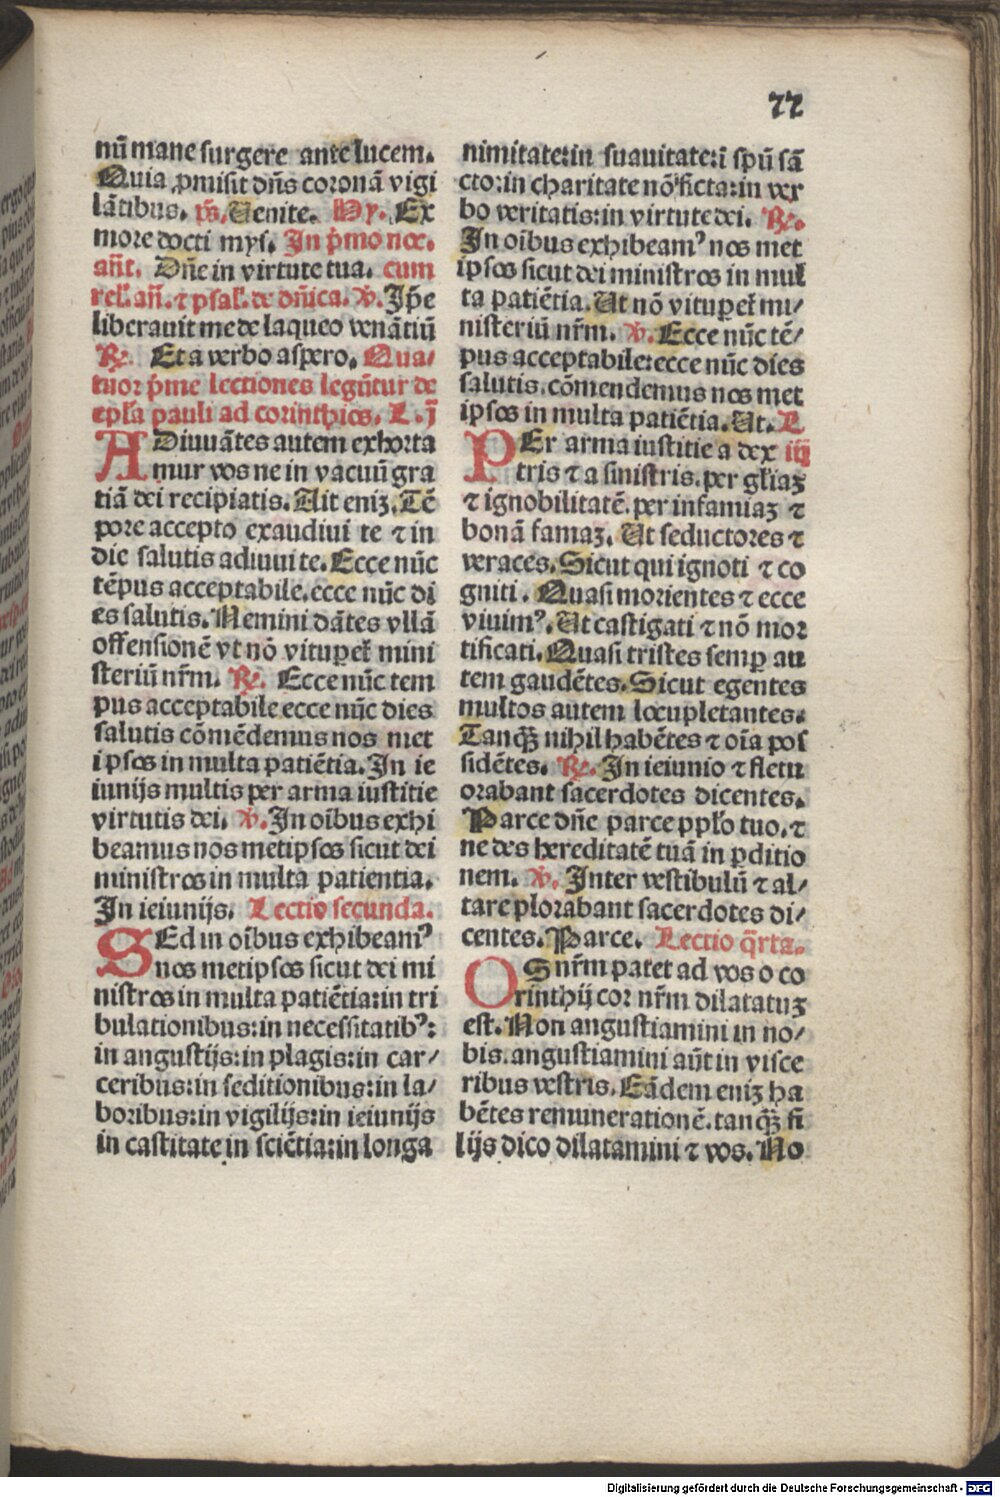 77
nū mane surgere ante lucem.
Quia ꝓmisit dn̄s coronā vigi
lātibus. p̄s. Uenite. Hy. Ex
more docti mys. In p̄mo noc.
an̄t. Dn̄e in virtute tua. cum
rel̄. an̄. ⁊ psal̄. de dn̄ica. ℣. Ip̄e
liberauit me de laqueo venātiū
℟. Et a verbo aspero. Qua⸗
tuor p̄me lectiones legūtur de
epl̄a pauli ad corinthios. L. j
ADiuuātes autem exhorta
mur vos ne in vacuū gra
tiā dei recipiatis. Ait eniꝫ. Tē
pore accepto exaudiui te ⁊ in
die salutis adiuui te. Ecce nūc
tēpus acceptabile. ecce nūc di
es salutis. Nemini dātes vllā
offensionē vt nō vituꝑet̄ mini
steriū nr̄m. ℟. Ecce nūc tem
pus acceptabile ecce nūc dies
salutis cōmēdemus nos met
ipsos in multa patiētia. In ie
iunijs multis per arma iustitie
virtutis dei. ℣. In oībus exhi
beamus nos metipsos sicut dei
ministros in multa patientia.
In ieiunijs. Lectio secunda.
SEd in oībus exhibeam⁹
nos metipsos sicut dei mi
nistros in multa patiētia:in tri
bulationibus:in necessitatib⁹:
in angustijs:in plagis:in car⸗
ceribus:in seditionibus:in la⸗
boribus:in vigilijs:in ieiunijs
in castitate in sciētia:in longa
nimitate:in suauitate:ī spū sā
cto:in charitate nō ficta:in ver
bo veritatis:in virtute dei. ℟.
In oībus exhibeam⁹ nos met
ipsos sicut dei ministros in mul
ta patiētia. Ut nō vituꝑet̄ mi⸗
nisteriū nr̄m. ℣. Ecce nūc tē⸗
pus acceptabile:ecce nūc dies
salutis. cōmendemus nos met
ipsos in multa patiētia. Ut. L
PEr arma iustitie a dex iij
tris ⁊ a sinistris. per gl̄iaꝫ
⁊ ignobilitatē. per infamiaꝫ ⁊
bonā famaꝫ. Ut seductores ⁊
veraces. Sicut qui ignoti ⁊ co
gniti. Quasi morientes ⁊ ecce
viuim⁹. Ut castigati ⁊ nō mor
tificati. Quasi tristes semꝑ au
tem gaudētes. Sicut egentes
multos autem locupletantes.
Tanqꝫ nihil habētes ⁊ oīa pos
sidētes. ℟. In ieiunio ⁊ fletu
orabant sacerdotes dicentes.
Parce dn̄e parce ppl̄o tuo. ⁊
ne des hereditatē tuā in ꝑditio
nem. ℣. Inter vestibulū ⁊ al⸗
tare plorabant sacerdotes di⸗
centes. Parce. Lectio q̄rta.
OS nr̄m patet ad vos o co
rinthij cor nr̄m dilatatuꝫ
est. Non angustiamini in no⸗
bis. angustiamini aūt in visce
ribus vestris. Eādem eniꝫ ha
bētes remunerationē. tanqꝫ fi
lijs dico dilatamini ⁊ vos. No
Digitalisierung gefördert durch die Deutsche Forschungsgemeinschaft - DFG